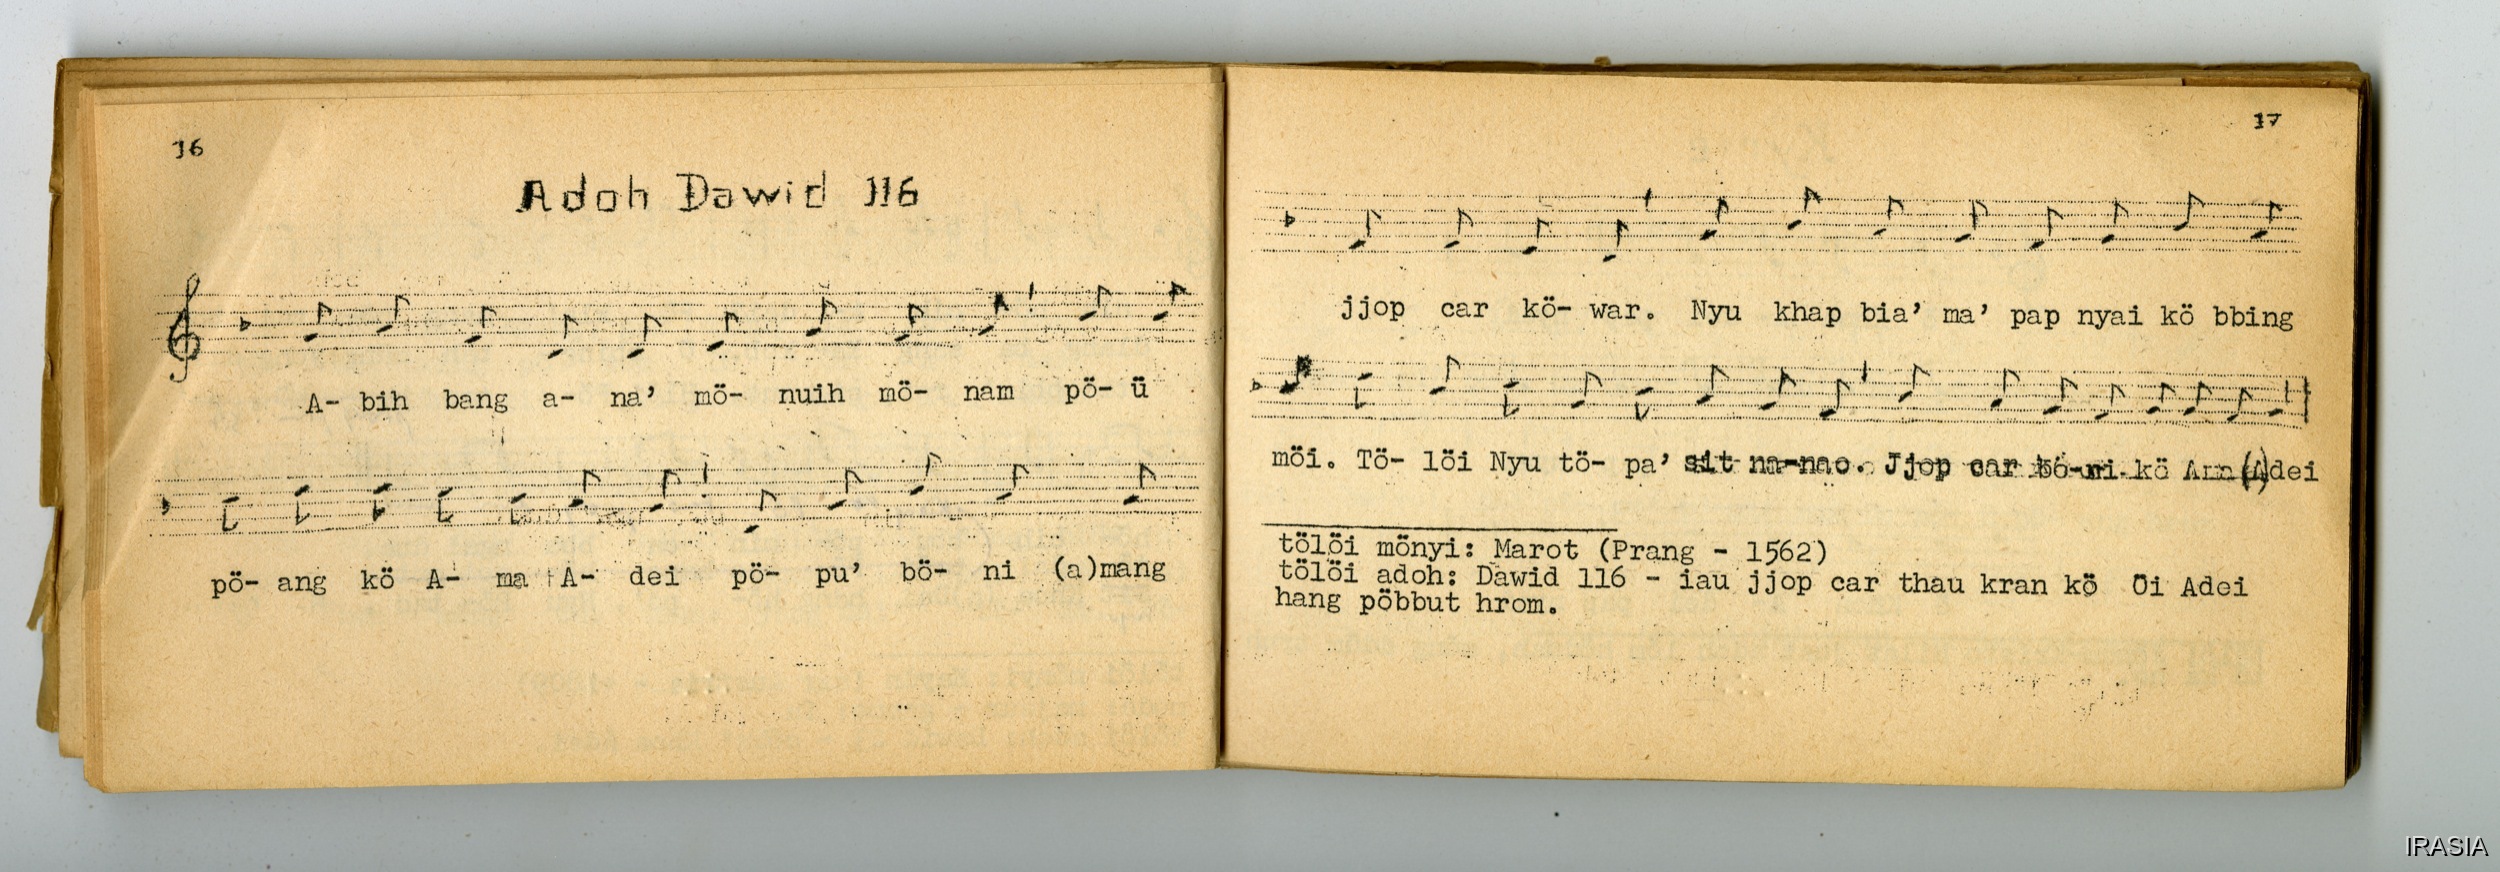 16
Adoh Dawid 116
A- bih bang a- na' mö- nuih mö- nam pö- ü
pö- ang kö A- ma A- dei pö- pu' bö- ni (a)mang
17
jjop car kö- war. Nyu khap bia' ma' pap nyai kö bbing
möi. Tö- löi Nyu tö- pa' sit na-nao. Jjop car bö-ni kö Adei
tölöi mönyi: Marot (Prang - 1562)
tölöi adoh: Dawid 116 - iau jjop car thau kran kö Öi Adei
hang pöbbut hrom.
IRASIA